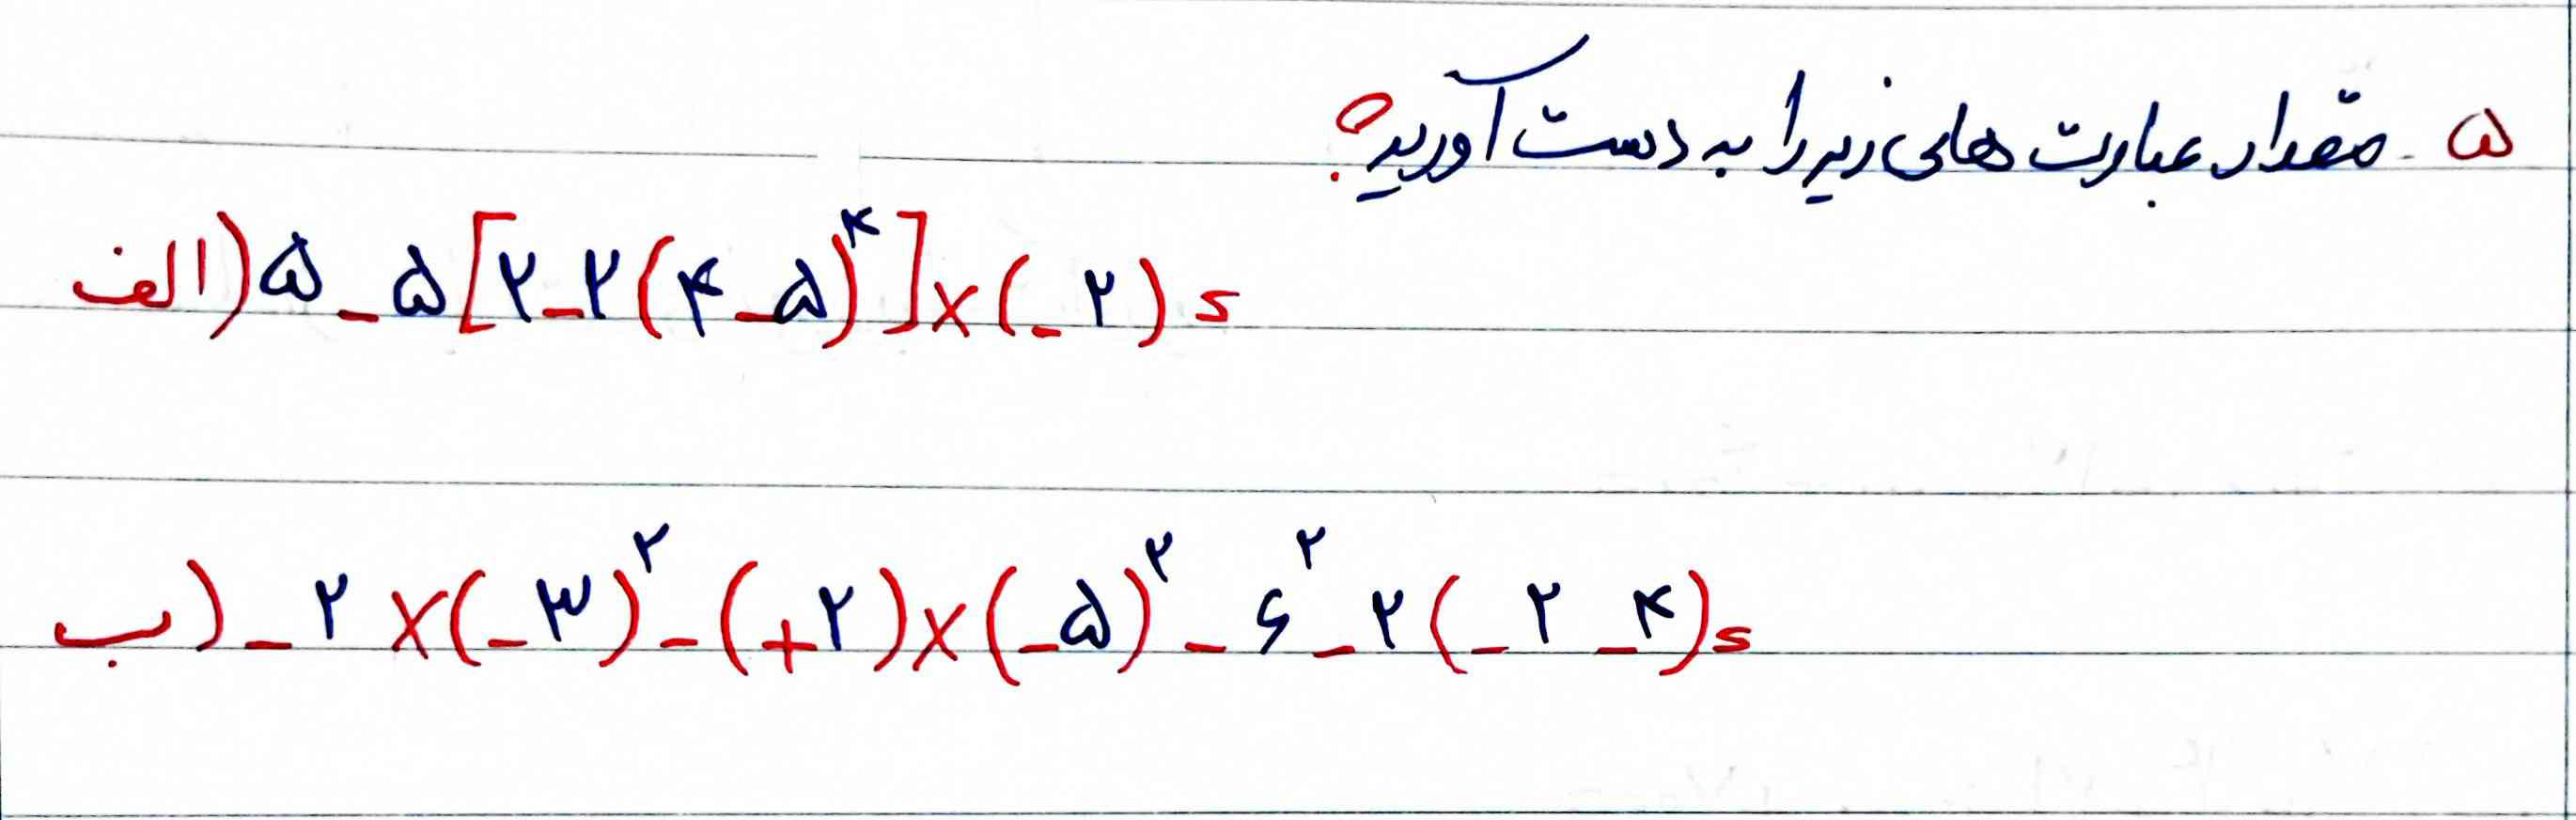 ۵ - مقدار عبارت های زیر را به دست آورید؟
الف) ۵ - ۵[۲ - ۲(۴ - ۵)^۴] × (-۲) =
ب) -۲ × (-۳)^۲ - (+۲) × (-۵)^۲ - ۶^۲ - ۲(-۲ - ۴) =